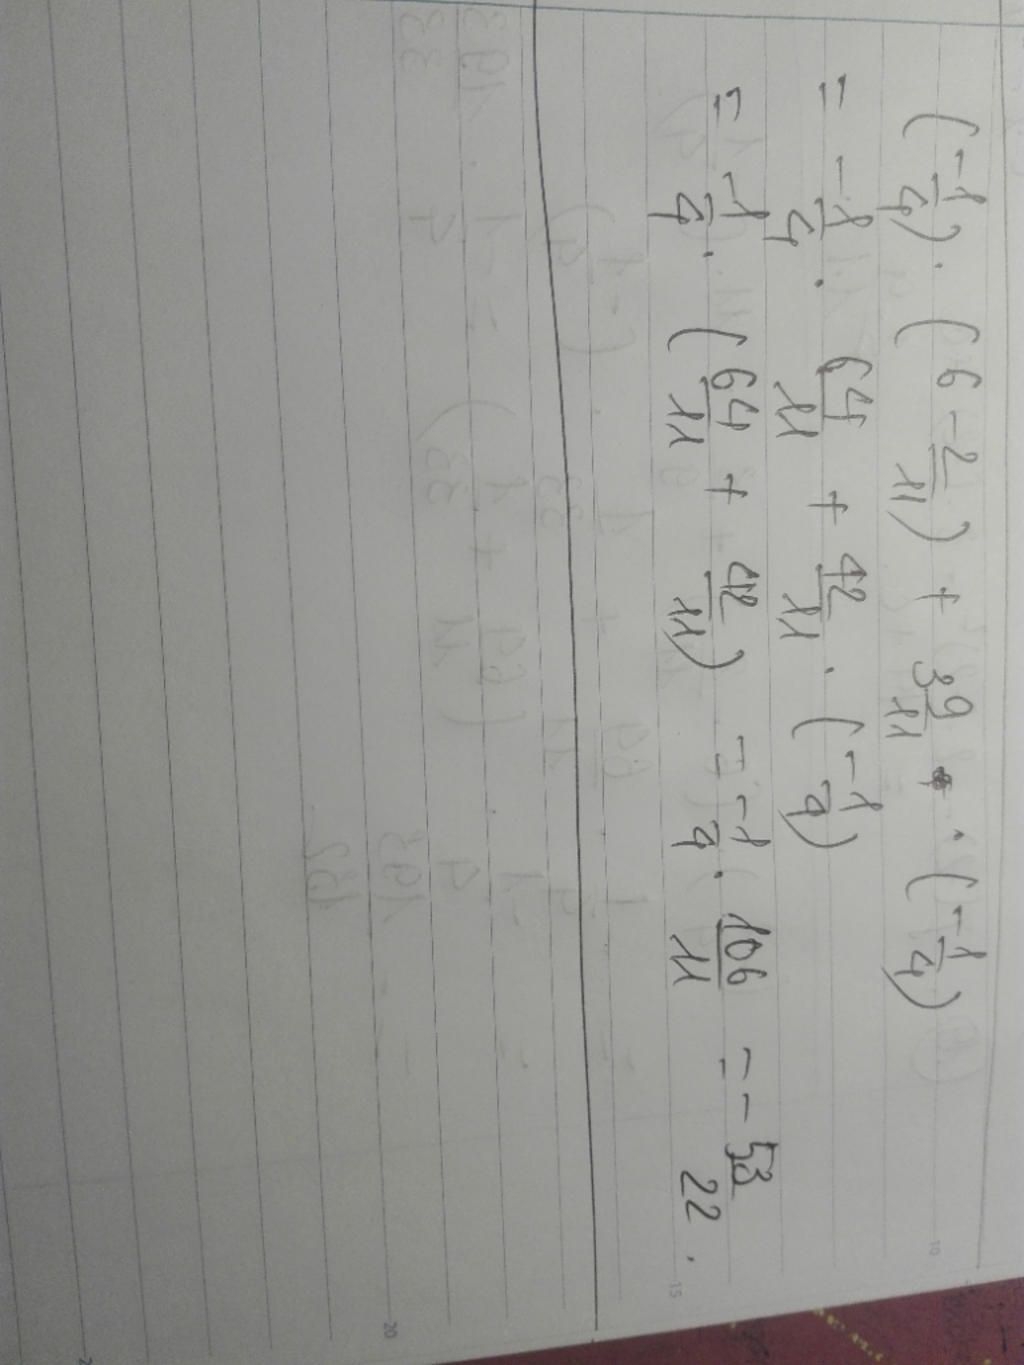 (-1/4) . (6 - 2/11) + 39/11 . (-1/4)
= -1/4 . 64/11 + 42/11 . (-1/4)
= -1/4 . (64/11 + 42/11) = -1/4 . 106/11 = - 53/22 .
10
15
20